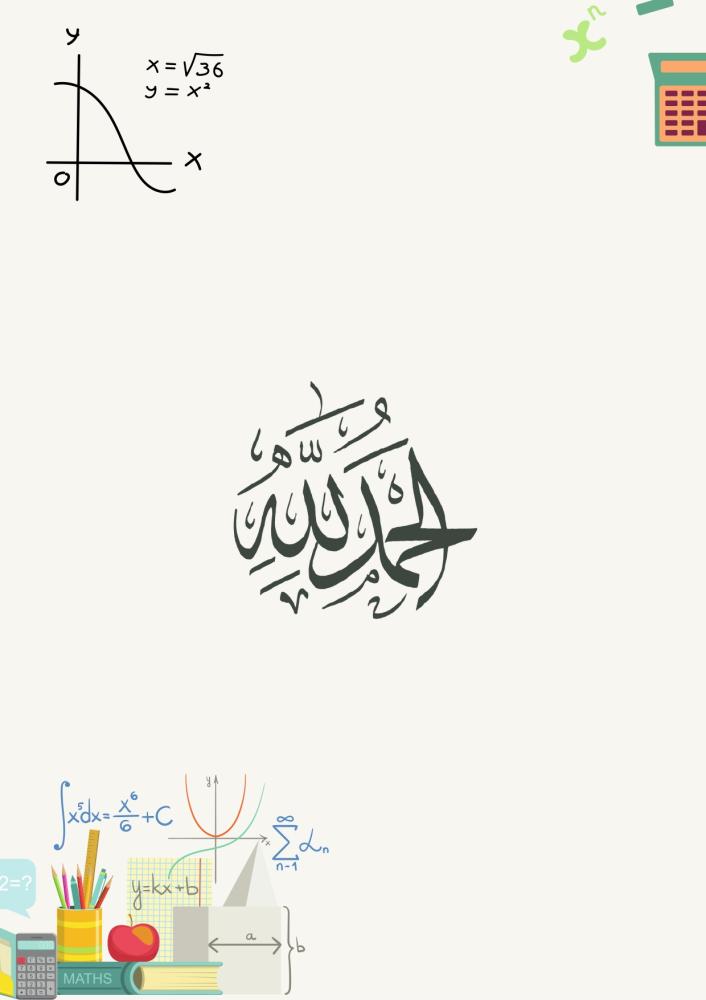 y
x = √36
y = x²
x
0
xⁿ
الحمد لله
∫x⁵dx = x⁶/6 + C
y
x
∞
∑ αₙ
n-1
2=?
y=kx+b
a
b
MATHS